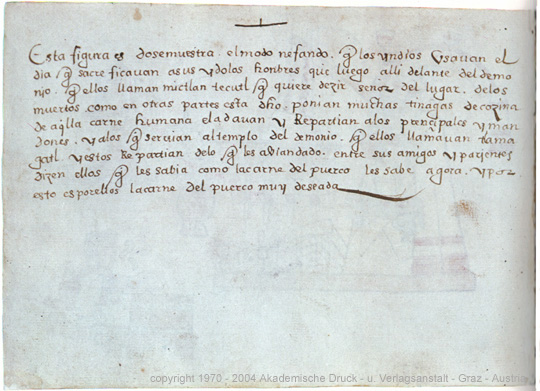 Esta figura es dosemuestra . elmodo nefando . q̃ los yndios Usavan el
dia q̃ sacreficavan asus ydolos honbres que luego alli delante del demo
nio . q̃ ellos llaman mictlan tecutl q̃ quiere dezir señor del lugar . delos
muertos como en otras partes esta dho . ponian muchas tinagas de cozina
de aq̃lla carne humana eladavan y Repartian alos prencipales yman
dones . yalos q̃ servian altemplo del demonio . q̃ ellos llamavan tama
gatl yestos Repartian delo q̃ les abiandado . entre sus amigos y parientes
dizen ellos q̃ les sabia como lacarne del puerco les sabe agora . y por
esto es porellos lacarne del puerco muy deseada
copyright 1970 - 2004 Akademische Druck - u. Verlagsanstalt - Graz - Austria